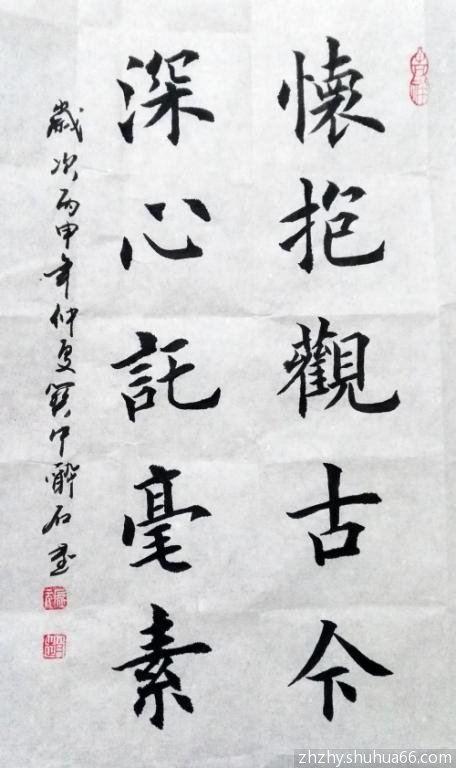 懷抱觀古今
深心託毫素
歲次丙申年仲夏冀中酔石書
吉祥
zhzhy.shuhua66.com